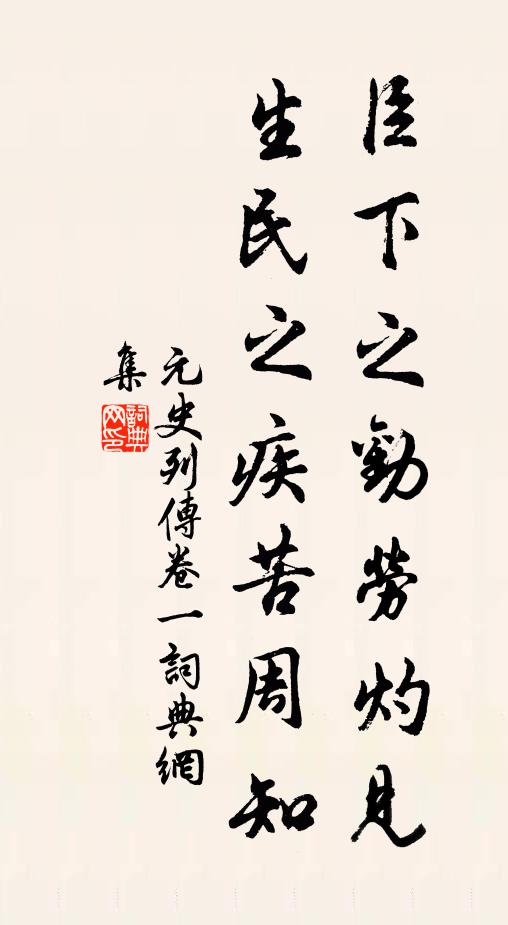 臣下之勤勞灼見
生民之疾苦周知
元史列傳卷一詞典網
集
詞典网印